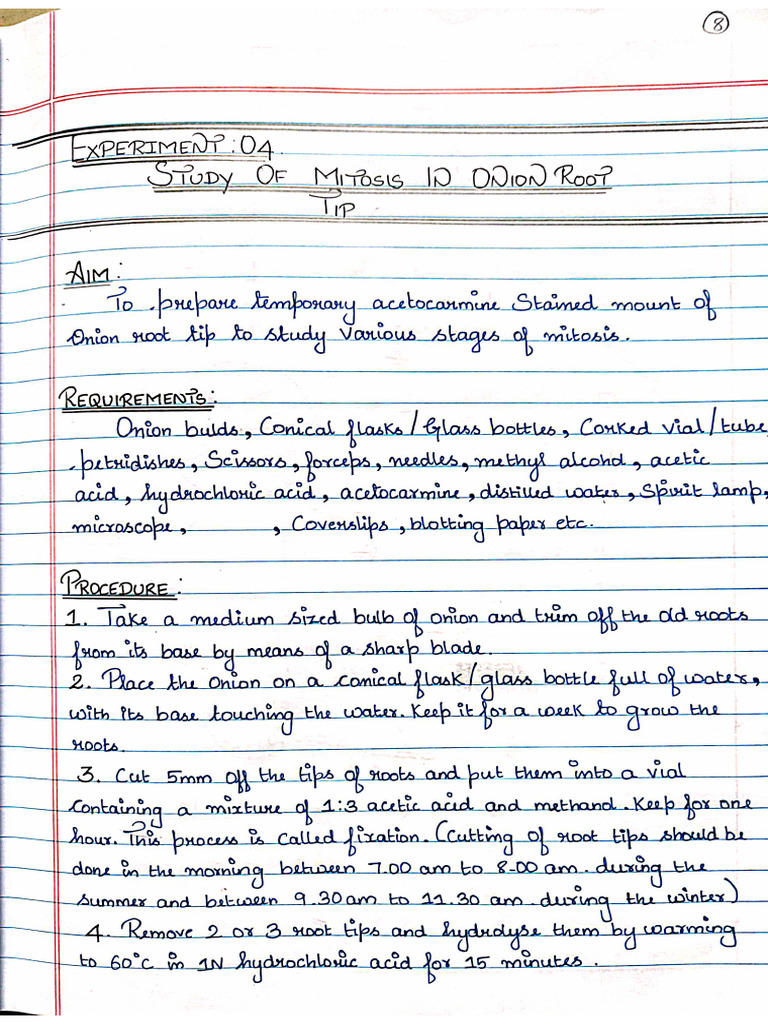 8
EXPERIMENT: 04
STUDY OF MITOSIS IN ONION ROOT
TIP
AIM:
To prepare temporary acetocarmine Stained mount of
Onion root tip to study various stages of mitosis.
REQUIREMENTS:
Onion bulds, Conical flasks/Glass bottles, Corked vial/tube,
petridishes, Scissors, forceps, needles, methyl alcohol, acetic
acid, hydrochloric acid, acetocarmine, distilled water, Spirit lamp,
microscope, , Coverslips, blotting paper etc.
PROCEDURE:
1. Take a medium sized bulb of onion and trim off the old roots
from its base by means of a sharp blade.
2. Place the onion on a conical flask/glass bottle full of water,
with its base touching the water. Keep it for a week to grow the
roots.
3. Cut 5mm off the tips of roots and put them into a vial
Containing a mixture of 1:3 acetic acid and methanol. Keep for one
hour. This process is called fixation. (Cutting of root tips should be
done in the morning between 7.00 am to 8-00 am. during the
summer and between 9.30am to 11.30 am. during the winter)
4. Remove 2 or 3 root tips and hydrolyse them by warming
to 60°C in 1N hydrochloric acid for 15 minutes.